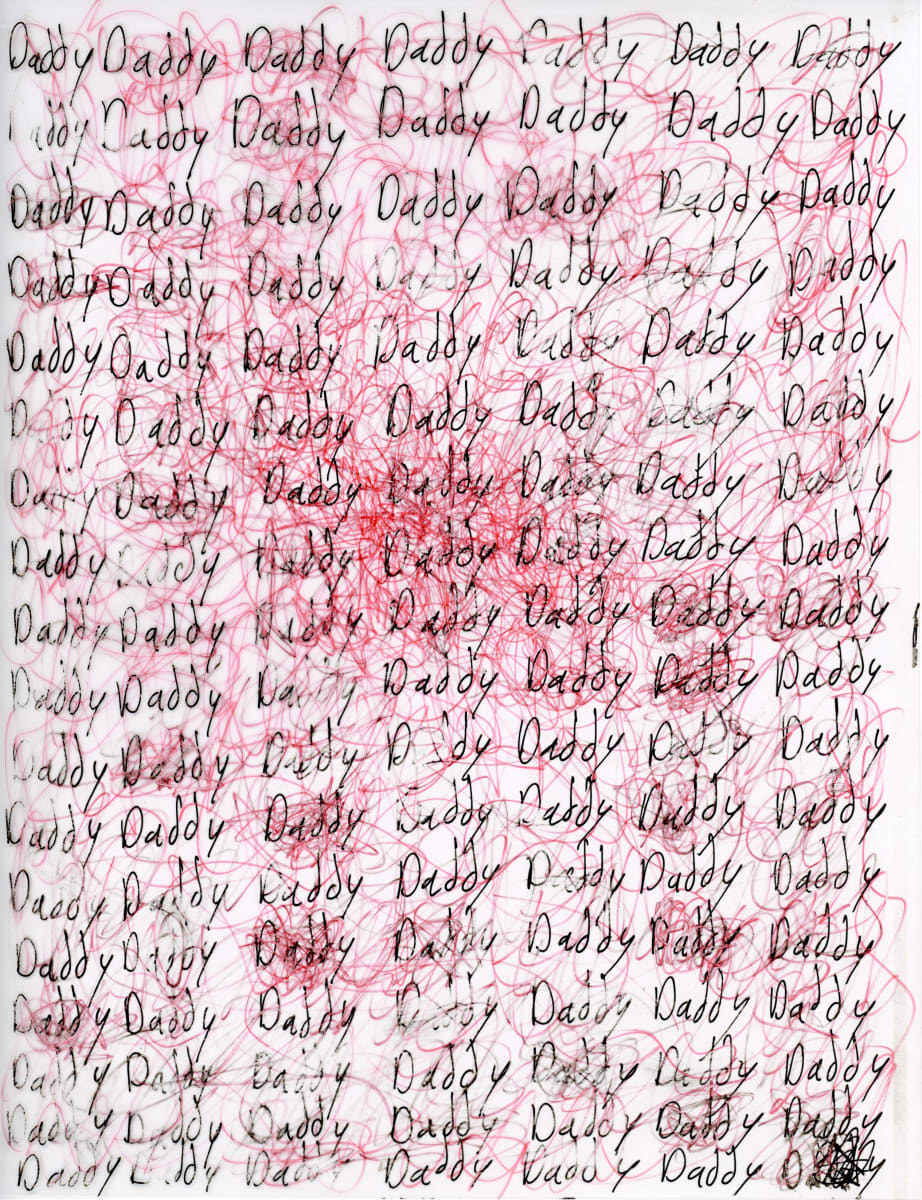 Daddy Daddy Daddy Daddy Daddy Daddy Daddy
Daddy Daddy Daddy Daddy Daddy Daddy Daddy
Daddy Daddy Daddy Daddy Daddy Daddy Daddy
Daddy Daddy Daddy Daddy Daddy Daddy Daddy
Daddy Daddy Daddy Daddy Daddy Daddy Daddy
Daddy Daddy Daddy Daddy Daddy Daddy Daddy
Daddy Daddy Daddy Daddy Daddy Daddy Daddy
Daddy Daddy Daddy Daddy Daddy Daddy Daddy
Daddy Daddy Daddy Daddy Daddy Daddy Daddy
Daddy Daddy Daddy Daddy Daddy Daddy Daddy
Daddy Daddy Daddy Daddy Daddy Daddy Daddy
Daddy Daddy Daddy Daddy Daddy Daddy Daddy
Daddy Daddy Daddy Daddy Daddy Daddy Daddy
Daddy Daddy Daddy Daddy Daddy Daddy Daddy
Daddy Daddy Daddy Daddy Daddy Daddy Daddy
Daddy Daddy Daddy Daddy Daddy Daddy Daddy
Daddy Daddy Daddy Daddy Daddy Daddy Daddy
Daddy Daddy Daddy Daddy Daddy Daddy